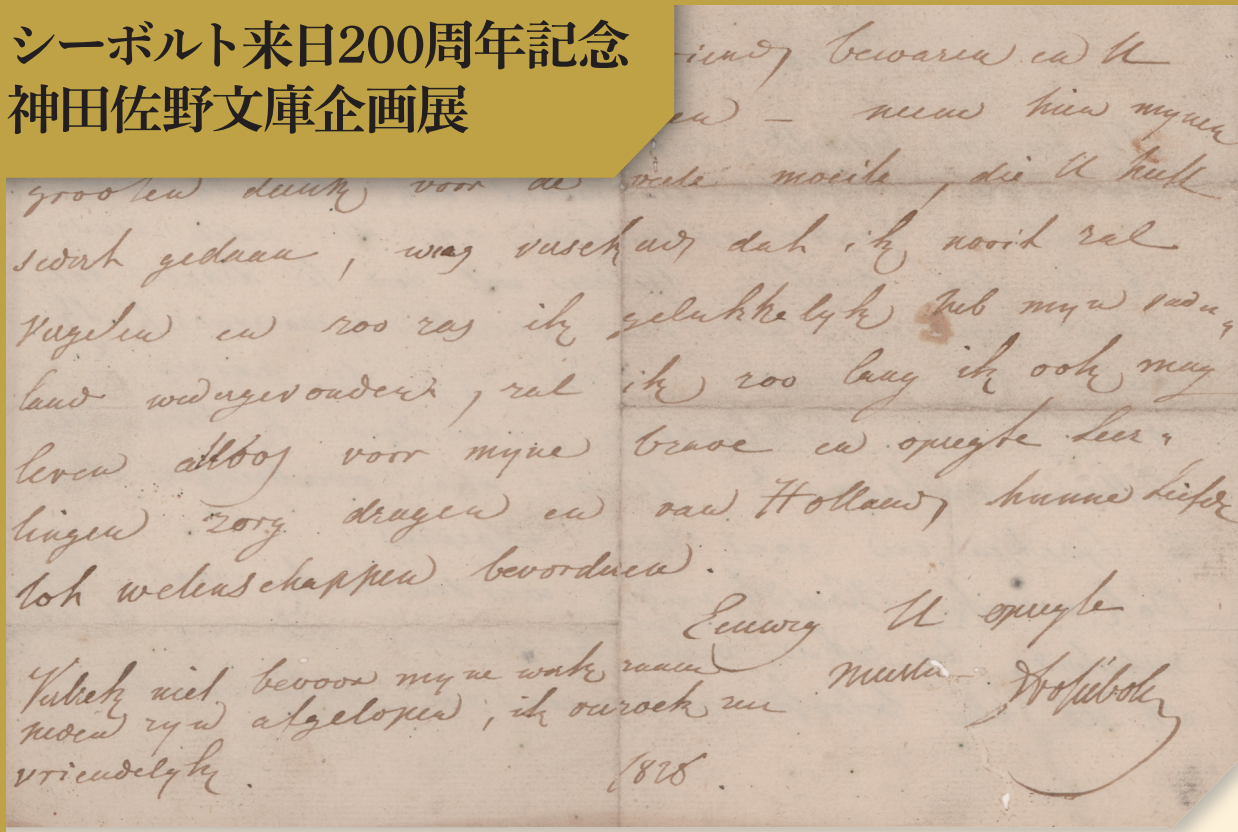 シーボルト来日200周年記念
神田佐野文庫企画展
bewaren en U
en – neem hier mynen
grooten dank voor de moeite, die U hebt
gedaan, weez dat ik nooit zal
en zoo ras ik gelukkelyk heb myn vader„
land wedergevonden, zal ik zoo lang ik ook mag
leven altoos voor myne brave en opregte Leer„
lingen zorg dragen en van Holland, hunne Liefde
tot wetenschappen bevorderen.
Eeuwig U opregte
niet bevoor myne
zyn afgelopen, ik nu
vriendelyk 1826